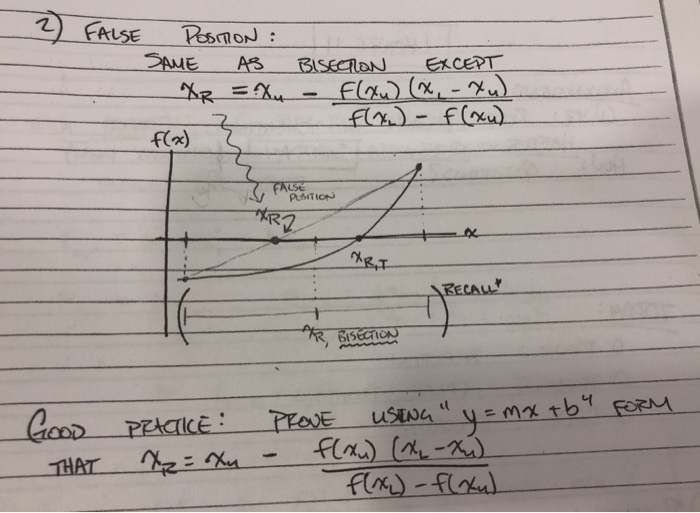 2) FALSE POSITION :
SAME AS BISECTION EXCEPT
x_R = x_u - f(x_u) (x_L - x_u) / f(x_L) - f(x_u)
f(x)
FALSE
POSITION
x_R
x
x_R,T
RECALL*
x_R, BISECTION
GOOD PRACTICE: PROVE USING "y = mx + b" FORM
THAT x_R = x_u - f(x_u) (x_L - x_u) / f(x_L) - f(x_u)